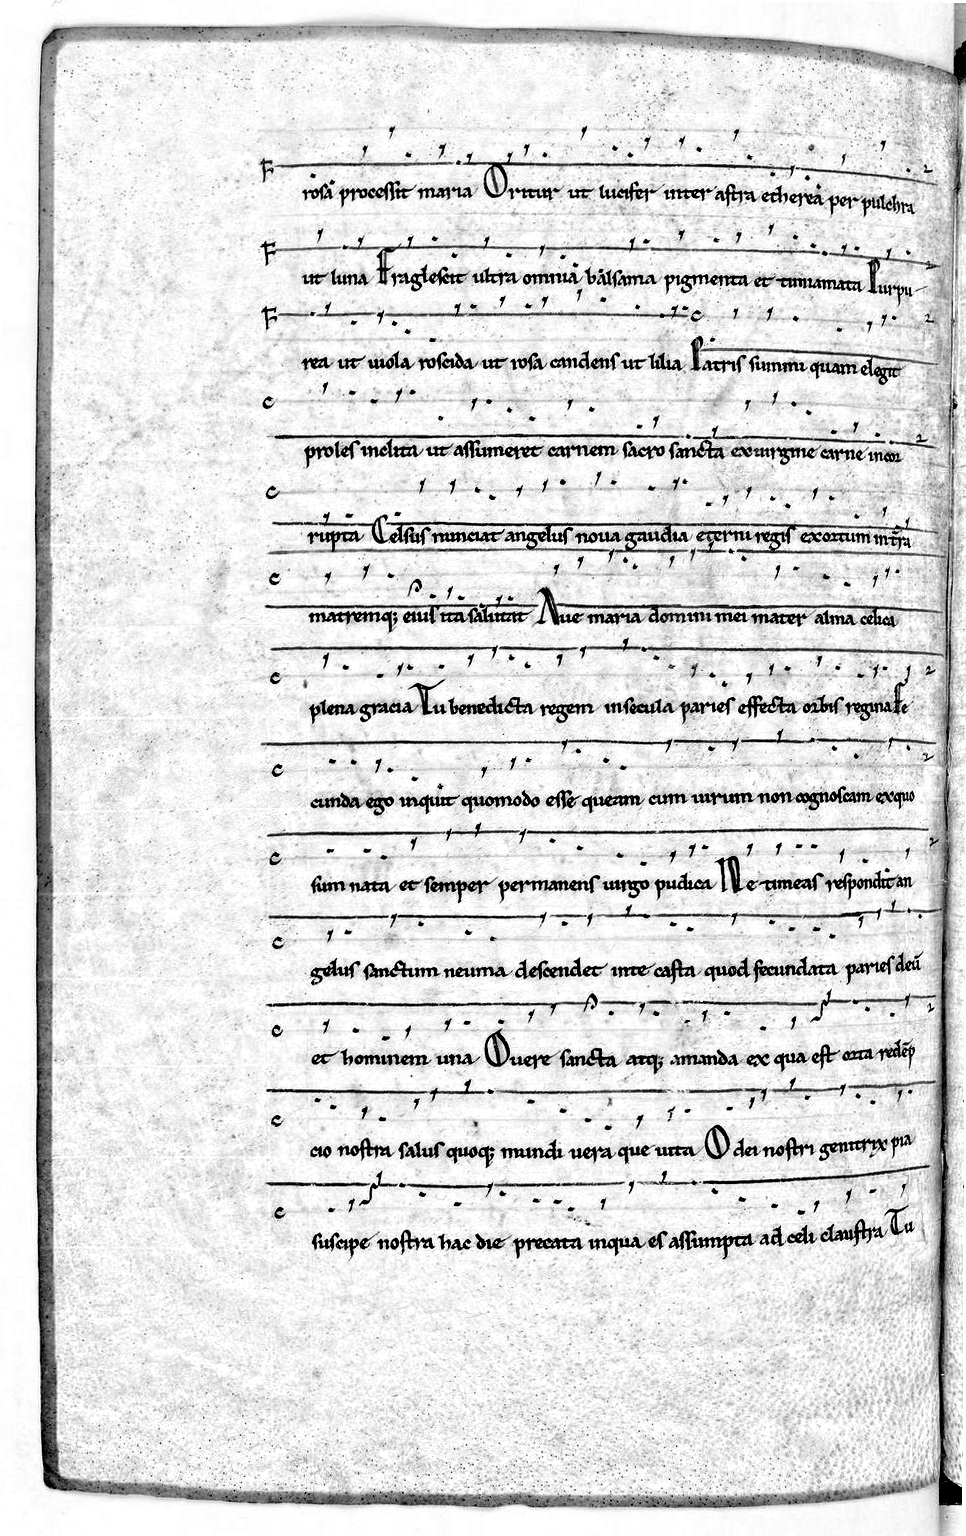 rosa processit maria Oritur ut lucifer inter astra etherea per pulchra
ut luna Fraglescit ultra omnia balsama pigmenta et timiamata Purpu-
rea ut uiola roscida ut rosa candens ut lilia Patris summi quam elegit
proles inclita ut assumeret carnem sacro sancta exuirgine carne incor
rupta Celsus nunciat angelus noua gaudia eterni regis exortum in tr̄a
matremq; eius ita salutat Aue maria domini mei mater alma celica
plena gracia Tu benedicta regem insecula paries effecta orbis regina Fe
cunda ego inquit quomodo esse queam cum uirum non cognoscam exquo
sum nata et semper permanens uirgo pudica Ne timeas respondit an
gelus sanctum neuma descendet inte casta quod fecundata paries deū
et hominem una O uere sancta atq; amanda ex qua est orta redēp
cio nostra salus quoq; mundi uera que uita O dei nostri genitrix pia
suscipe nostra hac die precata inqua es assumpta ad celi claustra Tu